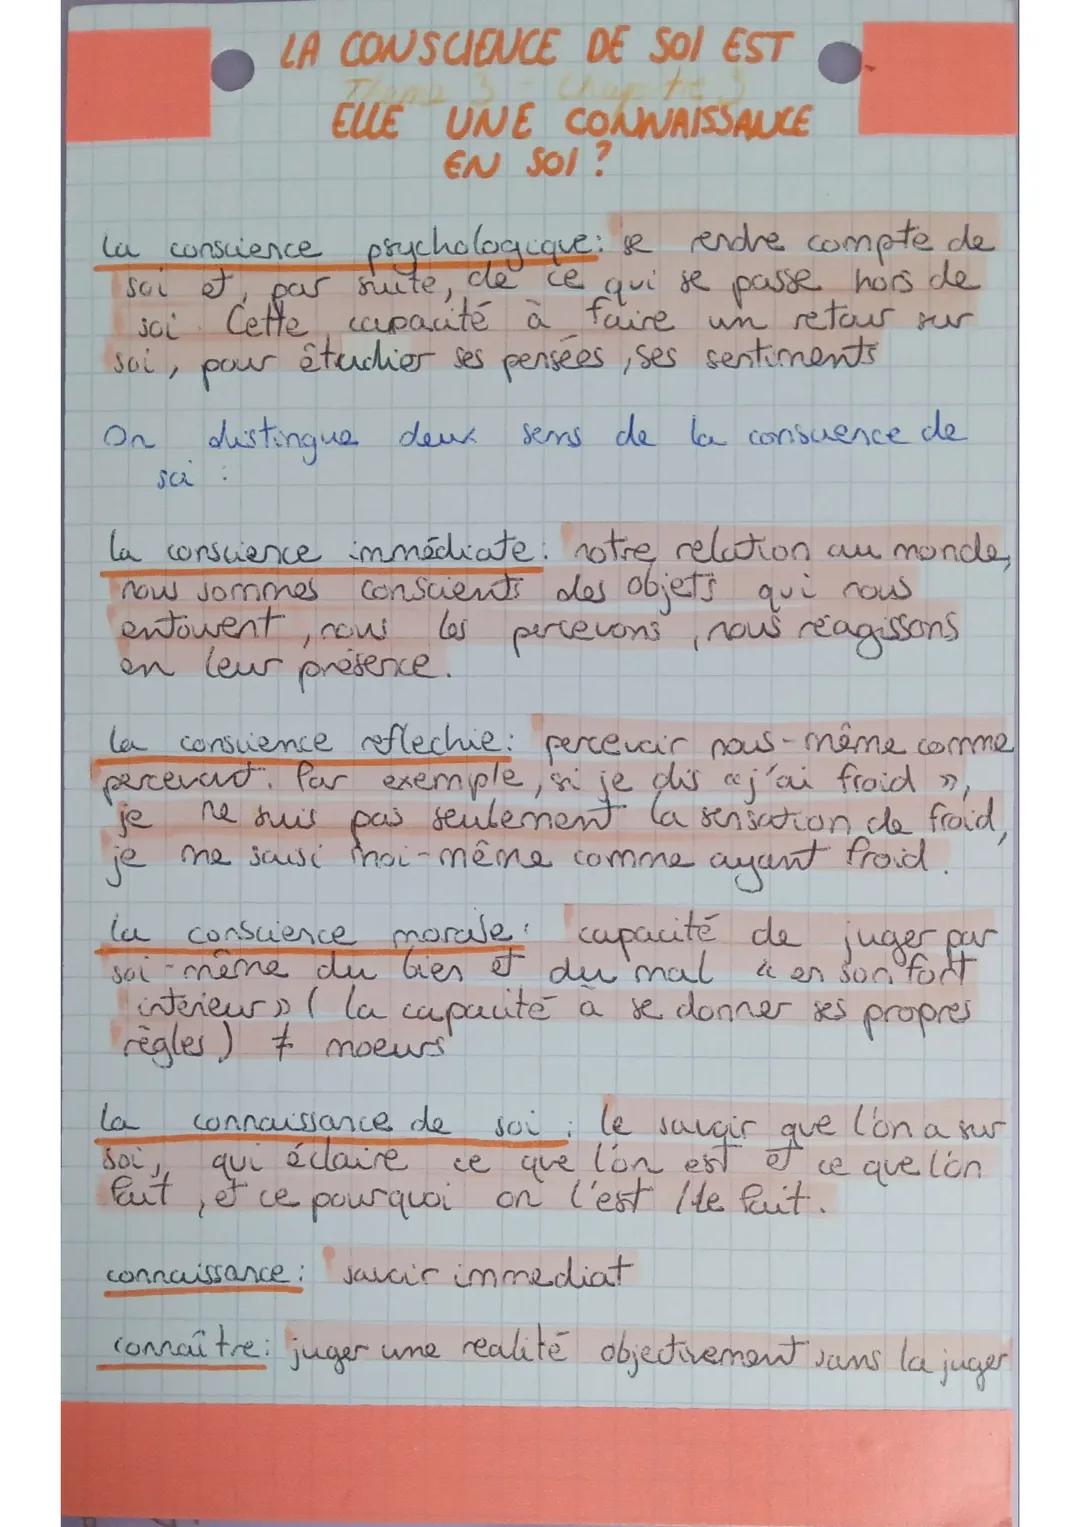 LA CONSCIENCE DE SOI EST
Thème 3 - Chapitre 3
ELLE UNE CONNAISSANCE
EN SOI ?
la conscience psychologique : se rendre compte de
soi et, par suite, de ce qui se passe hors de
soi. Cette capacité à faire un retour sur
soi, pour étudier ses pensées, ses sentiments
On distingue deux sens de la conscience de
soi :
la conscience immédiate : notre relation au monde,
nous sommes conscients des objets qui nous
entourent, nous les percevons, nous réagissons
en leur présence.
la conscience reflechie : percevoir nous-même comme
percevant. Par exemple, si je dis « j'ai froid »,
je ne suis pas seulement la sensation de froid,
je me saisi moi-même comme ayant froid.
la conscience morale : capacité de juger par
soi-même du bien et du mal « en son fort
intérieur » ( la capacité à se donner ses propres
règles ) ≠ moeurs
la connaissance de soi : le savoir que l'on a sur
soi, qui éclaire ce que l'on est et ce que l'on
fait, et ce pourquoi on l'est / le fait.
connaissance : savoir immediat
connaître : juger une realité objectivement sans la juger